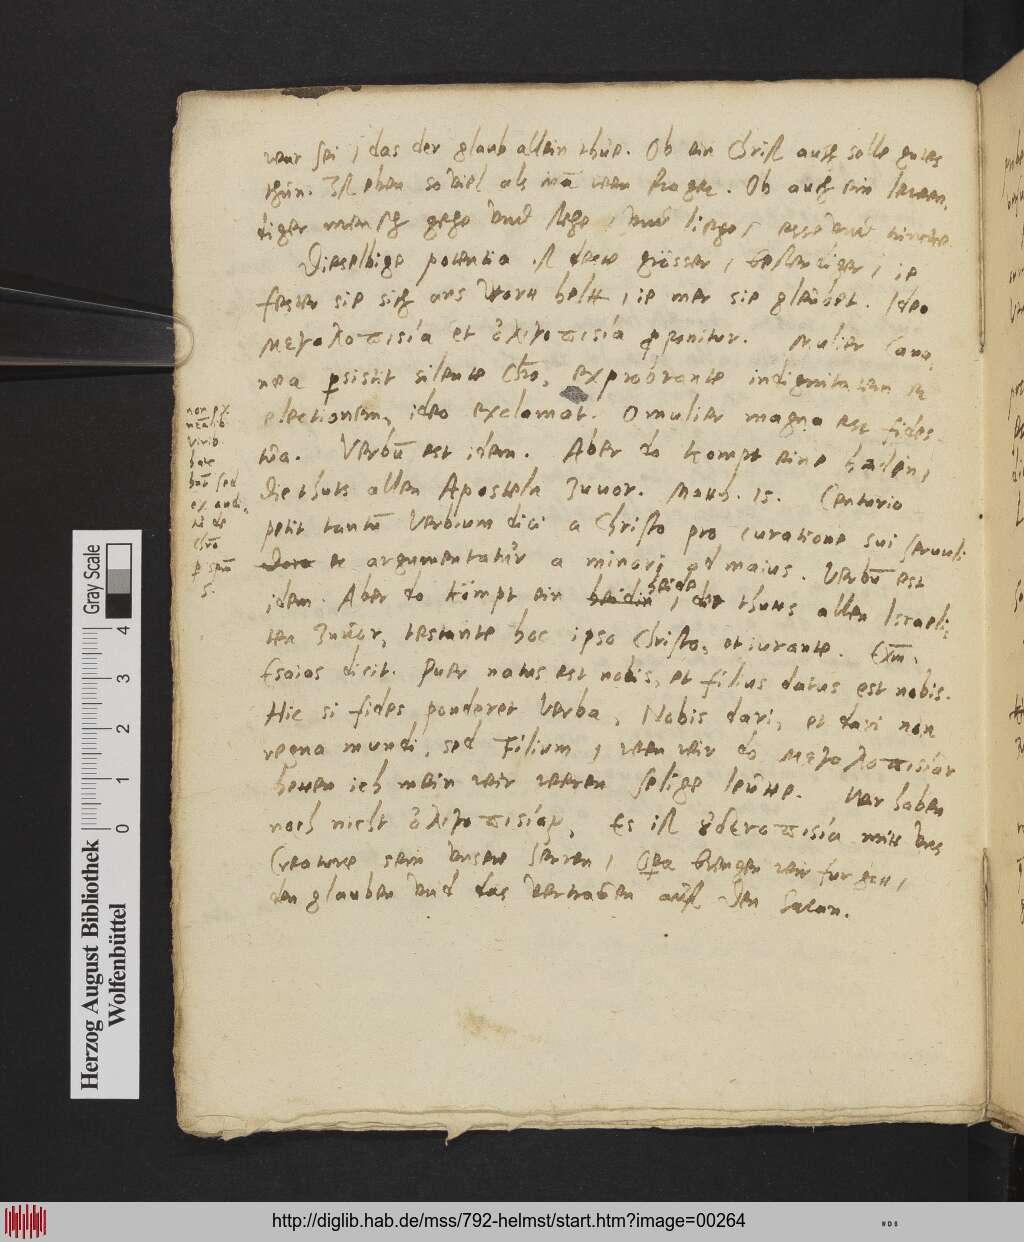 war sei, das der glaub allein thue. Ob ein Christ auch solle gutes
thun. Ist eben soviel als mā wen fraget. Ob auch ein leben-
diger mensch gehe vnd stehe, vnd liege, esse vnd trincke.
Dieselbige potentia ist deste grösser, bestendiger, ie
fester sie sich ans wortt heltt, ie mer sie gleubet. Ideo
μεγαλοπισία et ὀλιγοπισία opponitur. Mulier Cana-
nea psistit silente Chro, exprobrante indignitatem et
electionem, ideo exclamat. O mulier magna est fides
tua. Verbū est idem. Aber do kompt eine haidin,
die thuts allen Aposteln zuuor. Matth. 15. Centurio
petit tantū verbum dici a Christo pro curatione sui seruuli
et argumentatur a minori ad maius. Verbū est
idem. Aber do kompt ein haidin heide, der thuts allen Israeli-
ten zuuor, testante hoc ipso Christo, et iurante. Exm.
Esaias dicit. Puer natus est nobis, et filius datus est nobis.
Hic si fides ponderet verba, Nobis dari, et dari non
regna mundi, sed Filium, wen wir do μεγαλοπισίαν
hetten ich mein wir weren selige leutte. Wer haben
noch nicht ὀλιγοπισίαν, Es ist
Creature sein vnsere herren, brengen wir fur gott,
den glauben vnd das vertrauen auff den Satan.
non ex
virib.
hac
sed
ex audi-
tu de
Chro
p spm
s.
Herzog August Bibliothek
Wolfenbüttel
Gray Scale
0 1 2 3 4
http://diglib.hab.de/mss/792-helmst/start.htm?image=00264